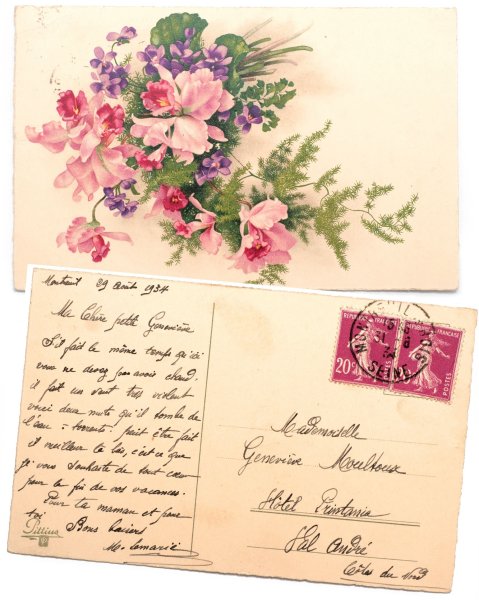 Montreuil 29 Août 1934
Ma Chère petite Geneviève
S'il fait le même temps qu'ici
vous ne devez pas avoir chaud,
il fait un vent très violent
voici deux nuits qu'il tombe de
l'eau à torrents. peut être fait
il meilleur là bas, c'est ce que
je vous souhaite de tout cœur
pour la fin de vos vacances.
Pour ta maman et pour
toi Bons baisers
M. Lemarié
RÉPUBLIQUE FRANÇAISE
20c
POSTES
SEINE
Mademoiselle
Geneviève Moultoux
Hôtel Printania
Val André
Côtes du Nord